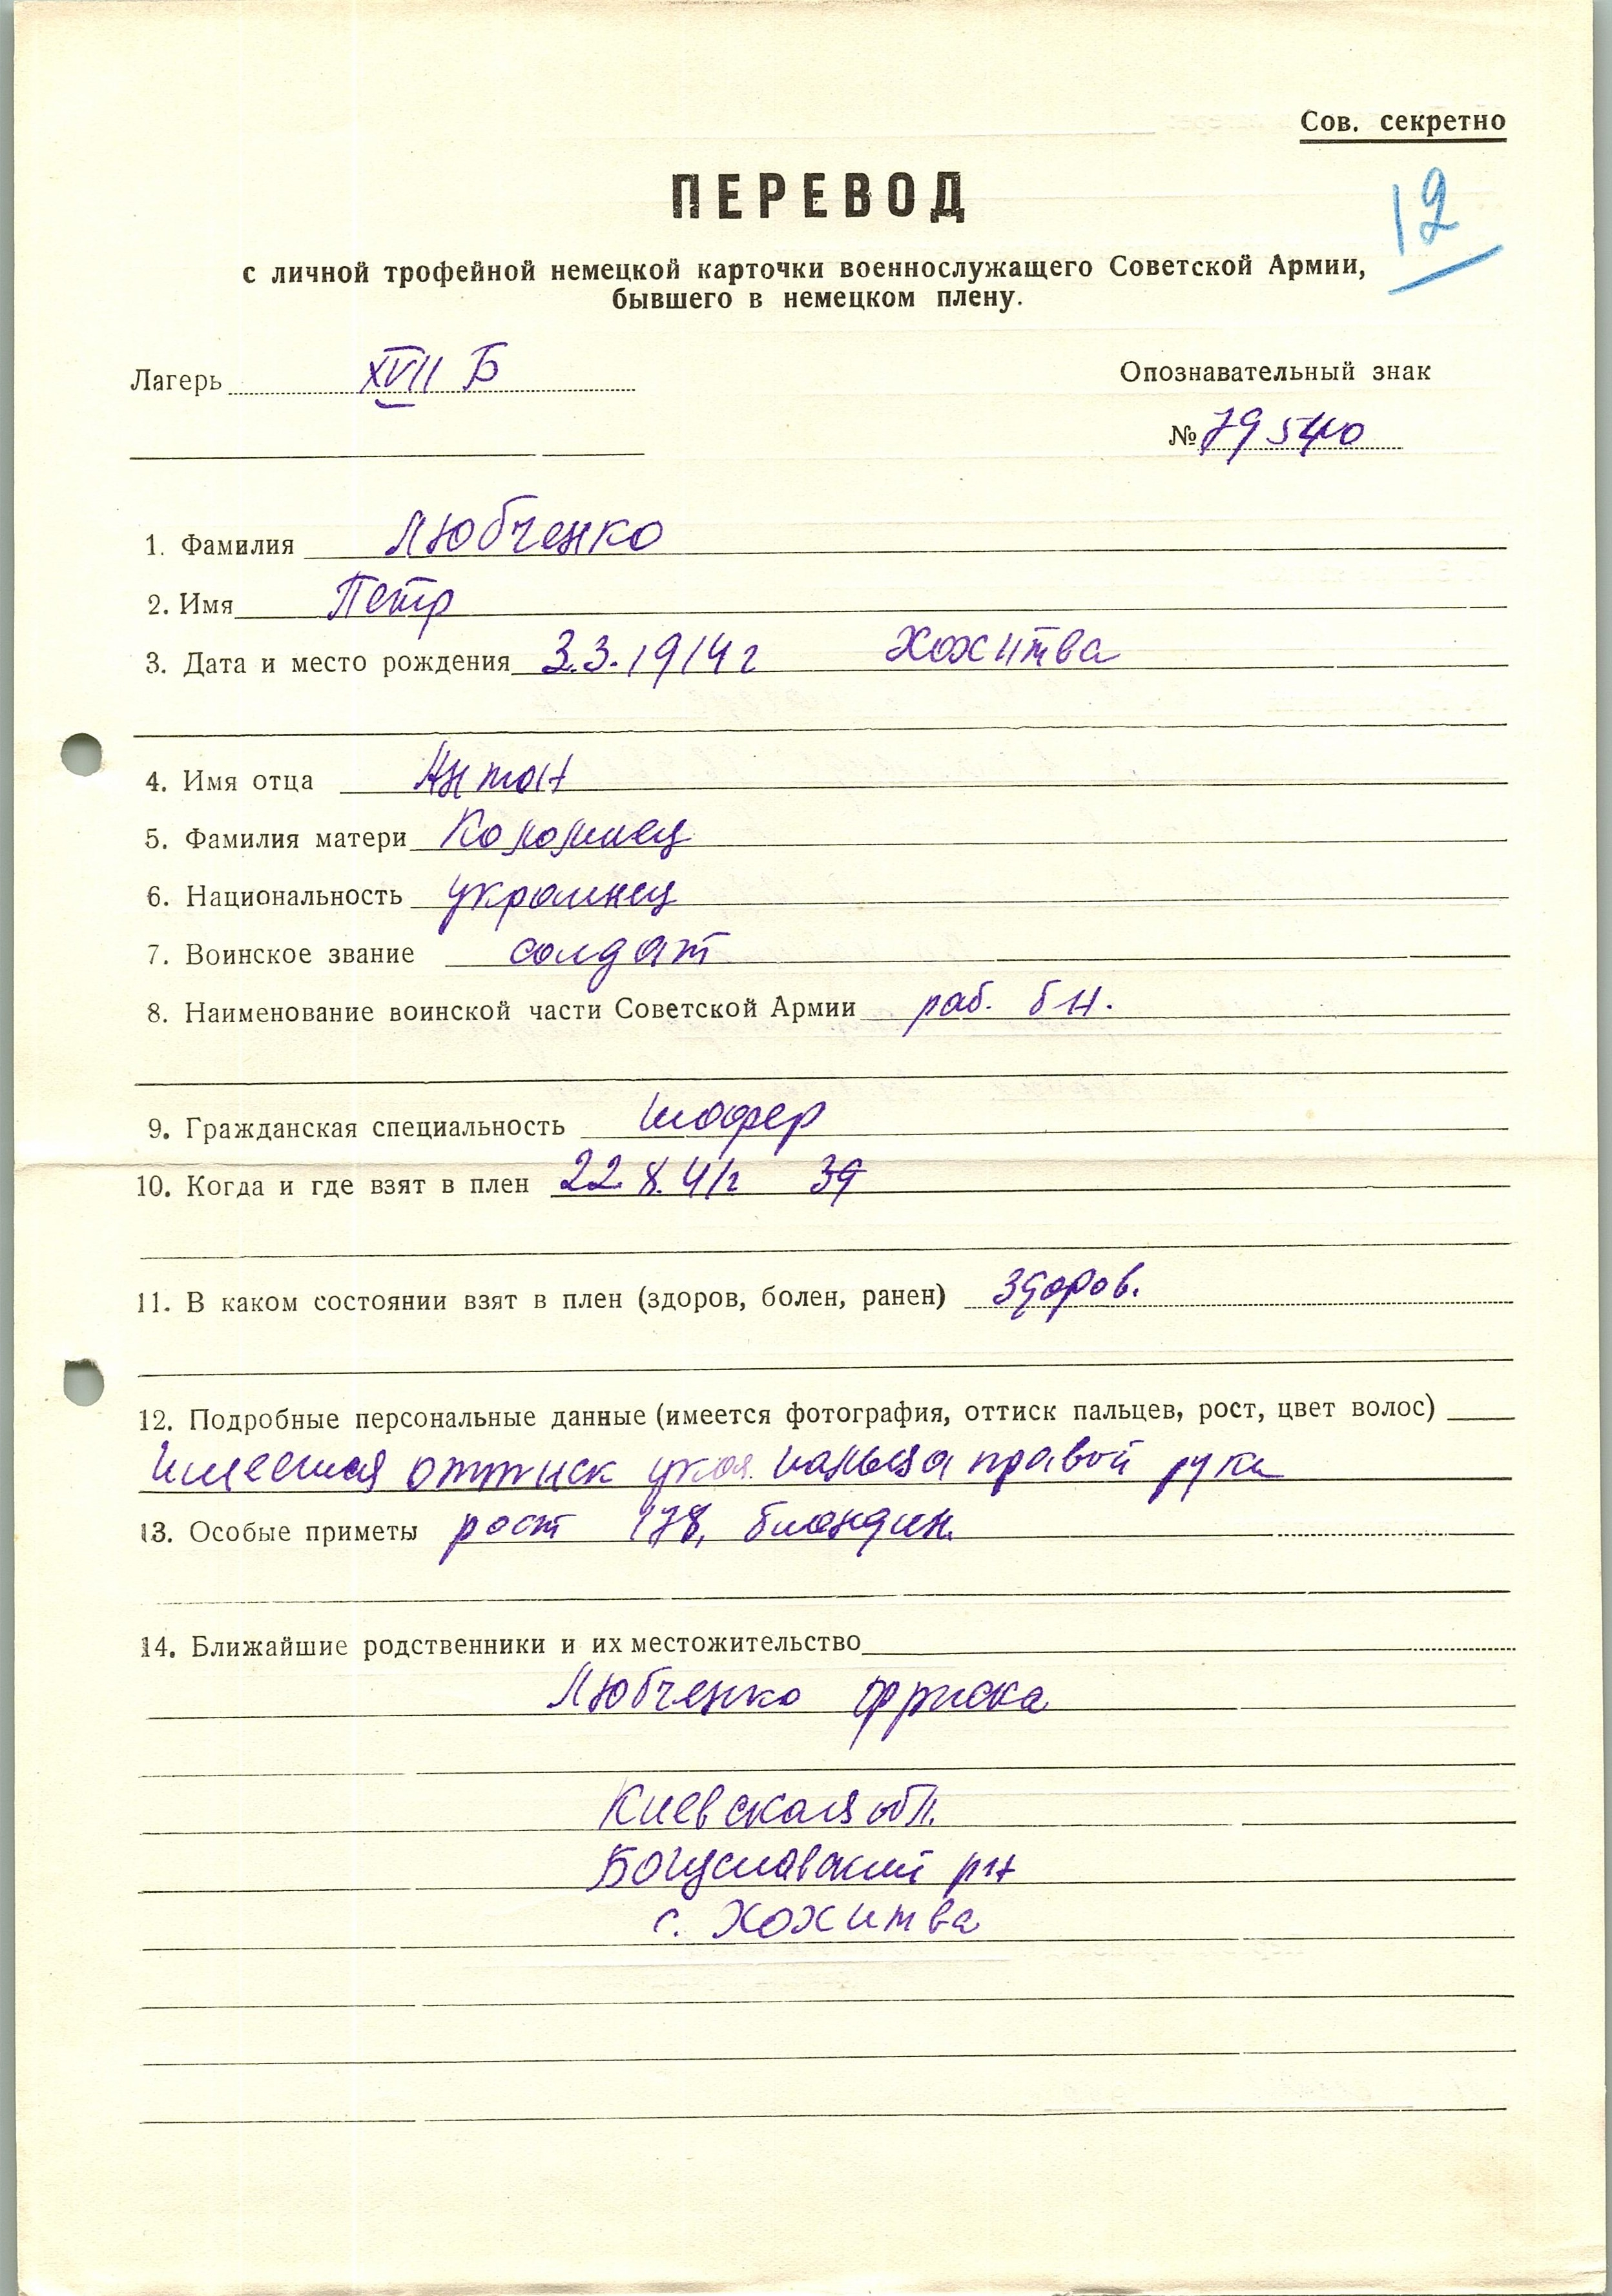 Сов. секретно
ПЕРЕВОД
12
с личной трофейной немецкой карточки военнослужащего Советской Армии,
бывшего в немецком плену.
Лагерь XVII Б
Опознавательный знак
№ 79540
1. Фамилия Любченко
2. Имя Петр
3. Дата и место рождения 3.3.1914г Хохитва
4. Имя отца Антон
5. Фамилия матери Коломиец
6. Национальность украинец
7. Воинское звание солдат
8. Наименование воинской части Советской Армии раб. бн.
9. Гражданская специальность шофер
10. Когда и где взят в плен 22.8.41г
11. В каком состоянии взят в плен (здоров, болен, ранен) здоров.
12. Подробные персональные данные (имеется фотография, оттиск пальцев, рост, цвет волос)
Имеется оттиск указ. пальца правой руки
13. Особые приметы рост 178, блондин.
14. Ближайшие родственники и их местожительство
Любченко
Киевская обл.
Богуславский рн
с. Хохитва